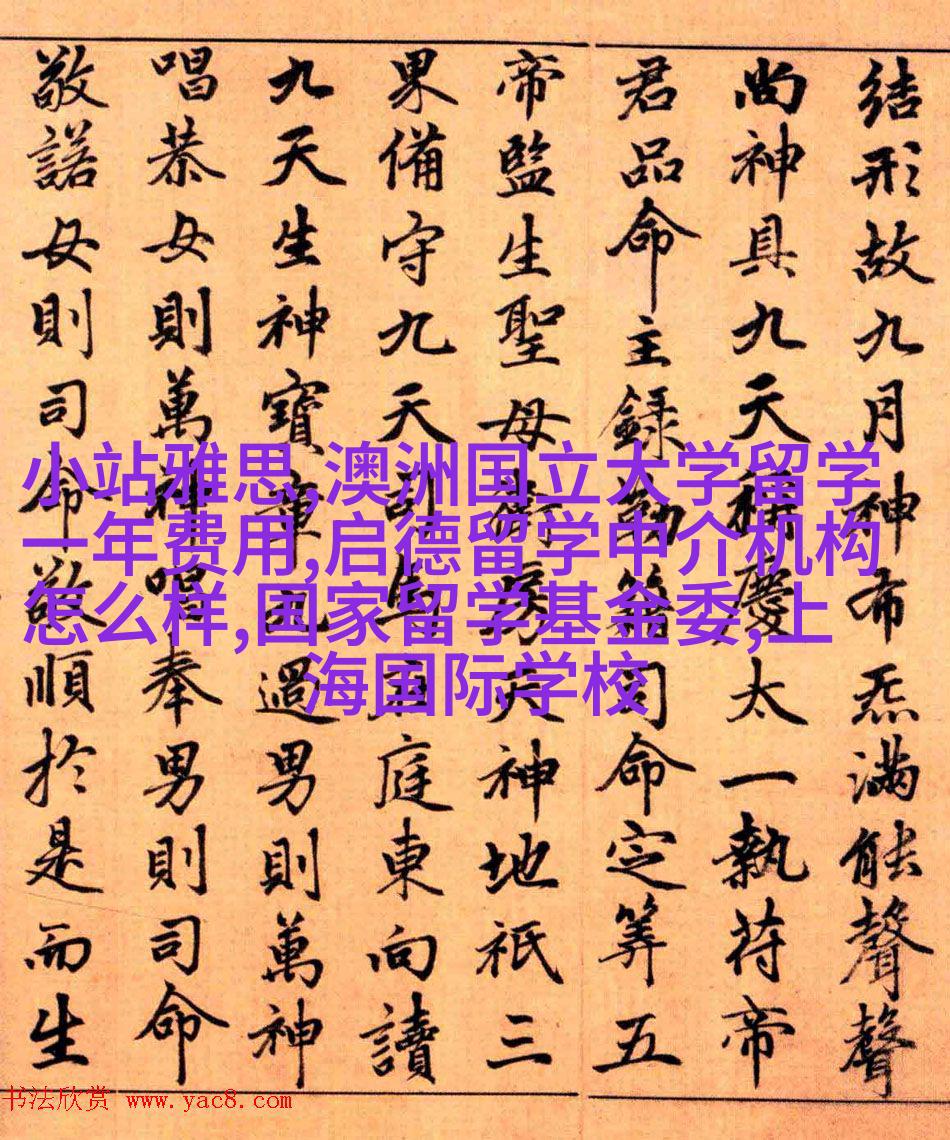 結形故九月神布炁滿能聲聲
尚神具九天稱慶太一執苻帝
君品命主錄勒籍司命定筭五
帝監生聖母衛房天神地祇三
果備守九天庭東向讀
九天生神寶章過男則萬神
唱恭女則萬神唱奉男則司命
敬諾女則司命敬順於是而生
小站雅思,澳洲国立大学留学
一年费用,启德留学中介机构
怎么样,国家留学基金委,上
海国际学校
书法欣赏 www.yac8.com